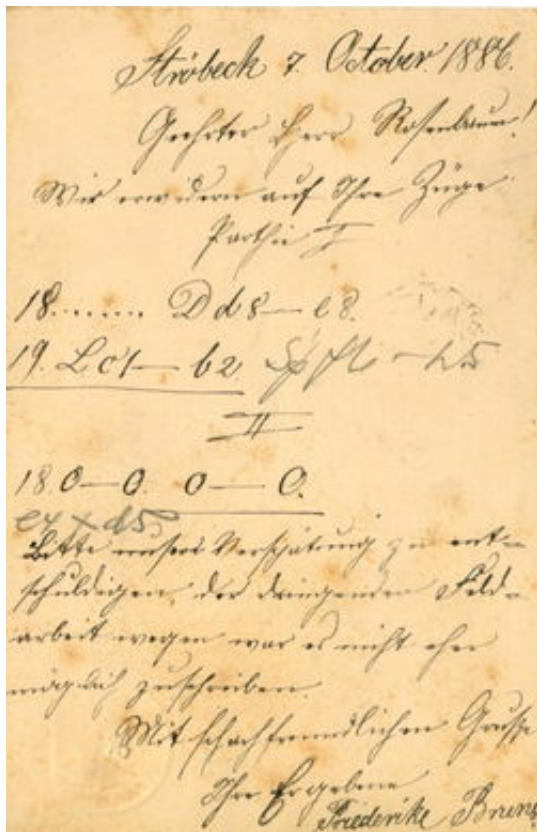 Ströbeck 7. October 1886.
Geehrter Herr Rosenbaum!
Wir erwidern auf Ihre Züge
Parthie I
18...... Dd8—e8.
19. Lc1—b2. Sf6—h5
II
18. 0—0. 0—0.
e4 x d5
Bitte unsere Verspätung zu ent-
schuldigen, der dringenden Feld-
arbeit wegen war es nicht eher
möglich zuschreiben.
Mit schachfreundlichen Grusse
Ihre Ergebene
Friederike Bruns